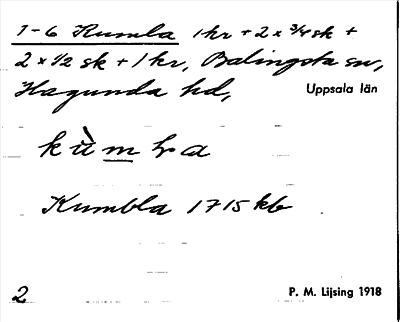 1-6 Kumla 1 hr + 2 x 3/4 sk +
2 x 1/2 sk + 1 hr, Balingsta sn,
Hagunda hd, Uppsala län
Kumbla 1715 kb
2 P. M. Lijsing 1918